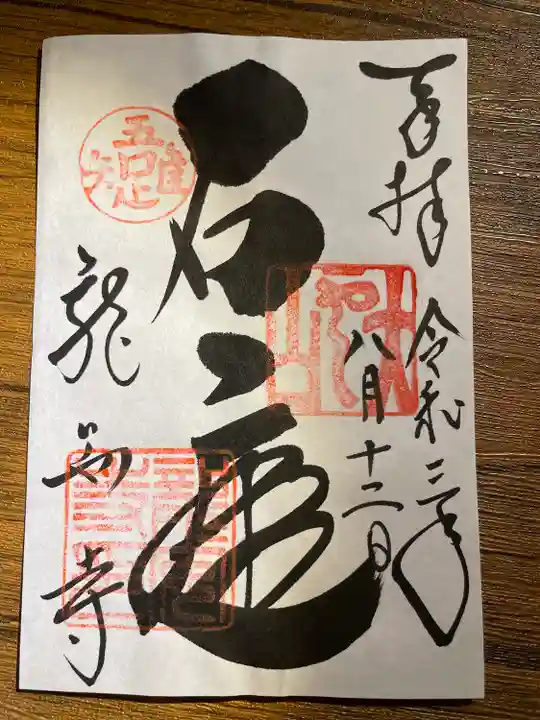 奉拝
令和三年
八月十二日
石庭
龍安寺